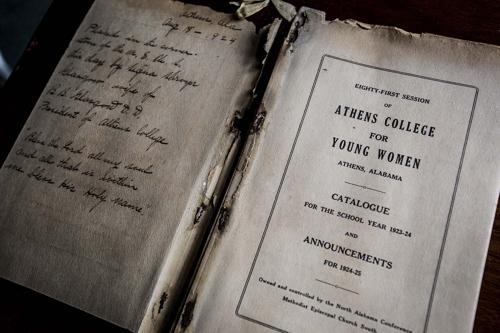 Athens, Ala
Aug 8 - 1924
Placed in the corner
stone for the
this day by
wife of
B. B. Glasgow D. D.
President of Athens College
"Bless the Lord oh my soul
and all that is within
me bless His Holy Name"
EIGHTY-FIRST SESSION
OF
ATHENS COLLEGE
FOR
YOUNG WOMEN
ATHENS, ALABAMA
CATALOGUE
FOR THE SCHOOL YEAR 1923-24
AND
ANNOUNCEMENTS
FOR 1924-25
Owned and controlled by the North Alabama Conference
Methodist Episcopal Church South